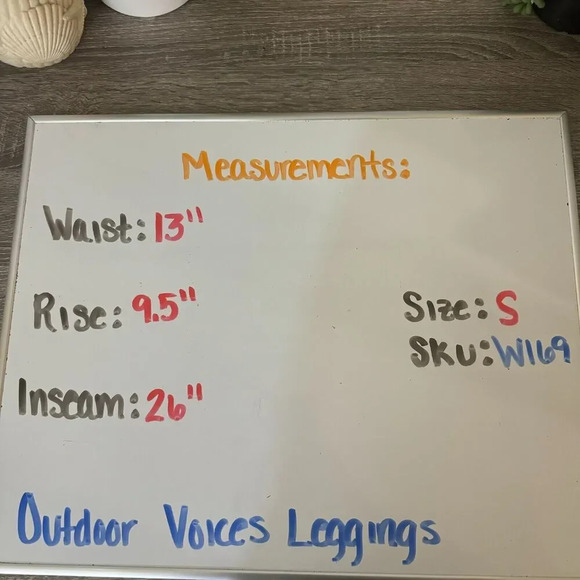 Measurements:
Waist: 13"
Rise: 9.5"
Inseam: 26"
Size: S
SKU: W169
Outdoor Voices Leggings